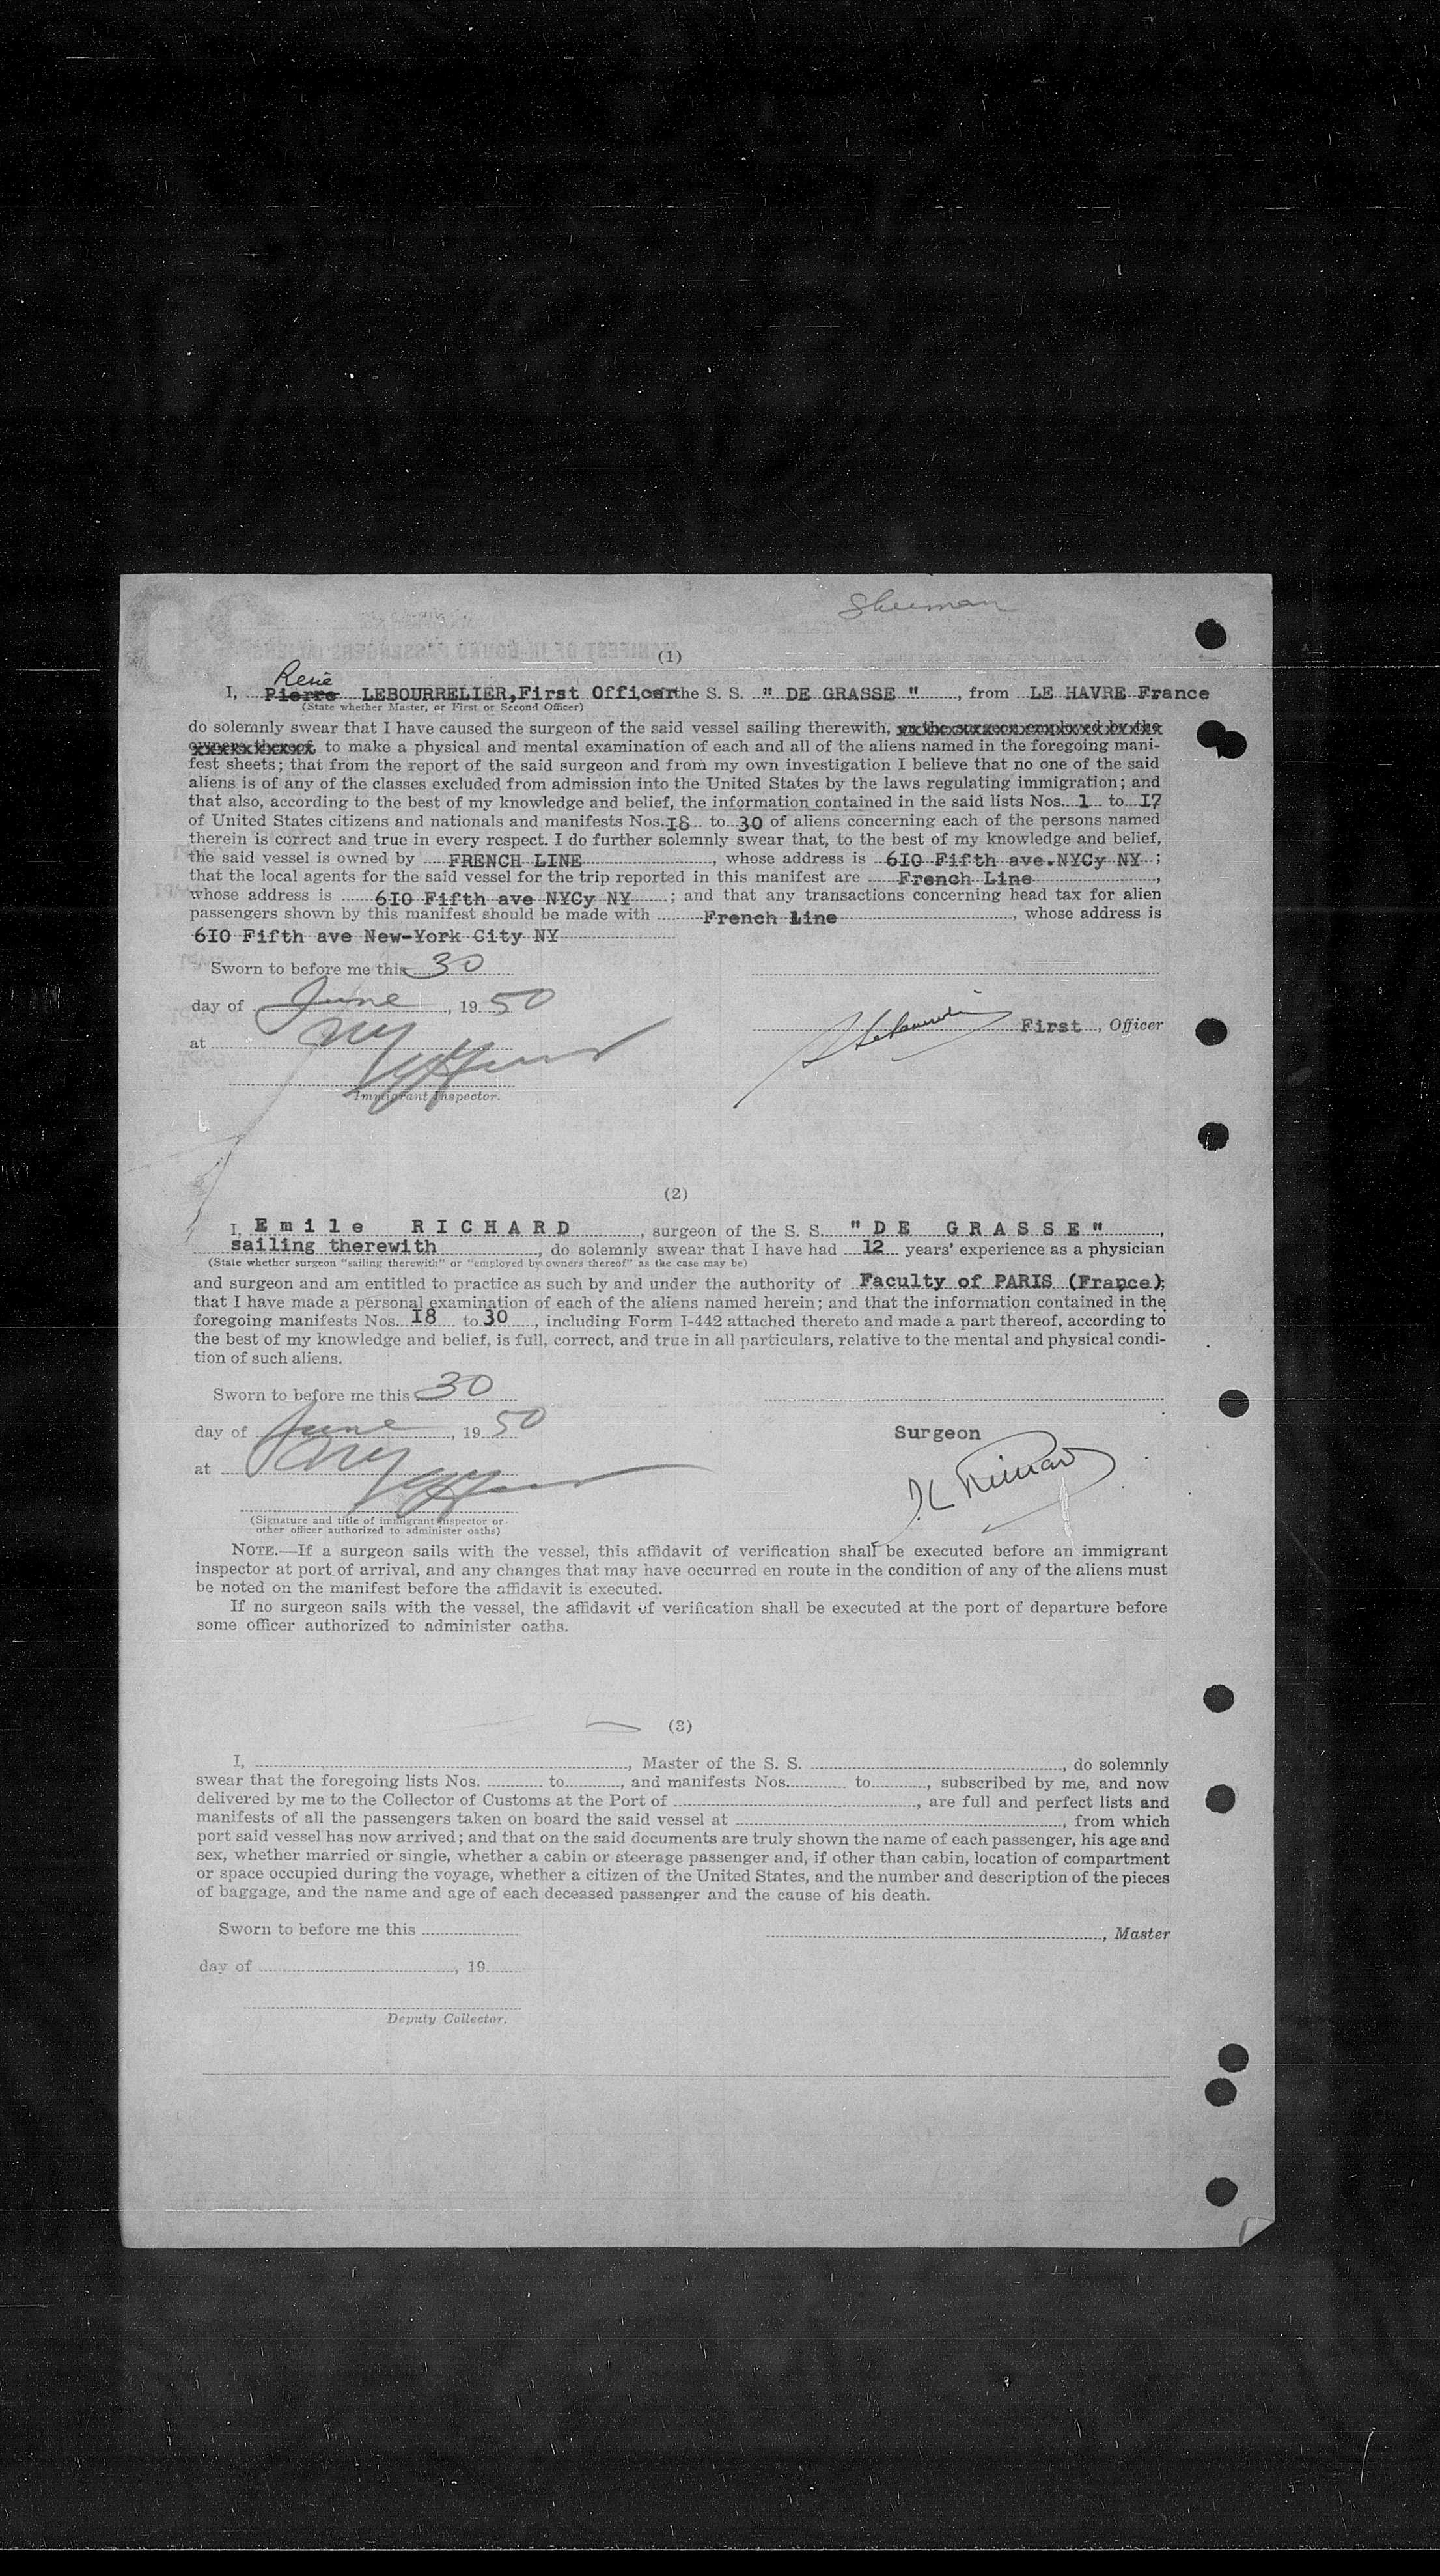 (1)
René
I, Pierre LEBOURRELIER, First Officer, of the S. S. " DE GRASSE ", from LE HAVRE France
(State whether Master, or First or Second Officer)
do solemnly swear that I have caused the surgeon of the said vessel sailing therewith, or the surgeon employed by the
owners thereof, to make a physical and mental examination of each and all of the aliens named in the foregoing mani-
fest sheets; that from the report of the said surgeon and from my own investigation I believe that no one of the said
aliens is of any of the classes excluded from admission into the United States by the laws regulating immigration; and
that also, according to the best of my knowledge and belief, the information contained in the said lists Nos. 1 to I7
of United States citizens and nationals and manifests Nos. I8 to 30 of aliens concerning each of the persons named
therein is correct and true in every respect. I do further solemnly swear that, to the best of my knowledge and belief,
the said vessel is owned by FRENCH LINE, whose address is 6I0 Fifth ave.NYCy NY ;
that the local agents for the said vessel for the trip reported in this manifest are French Line,
whose address is 6I0 Fifth ave NYCy NY ; and that any transactions concerning head tax for alien
passengers shown by this manifest should be made with French Line, whose address is
6I0 Fifth ave New-York City NY
Sworn to before me this 30
day of June, 19 50
First, Officer
at NY
Immigrant Inspector.
(2)
I, Emile RICHARD, surgeon of the S. S. "DE GRASSE",
sailing therewith, do solemnly swear that I have had 12 years' experience as a physician
(State whether surgeon "sailing therewith" or "employed by owners thereof" as the case may be)
and surgeon and am entitled to practice as such by and under the authority of Faculty of PARIS (France);
that I have made a personal examination of each of the aliens named herein; and that the information contained in the
foregoing manifests Nos. I8 to 30, including Form I-442 attached thereto and made a part thereof, according to
the best of my knowledge and belief, is full, correct, and true in all particulars, relative to the mental and physical condi-
tion of such aliens.
Sworn to before me this 30
day of June, 19 50
Surgeon
at NY
(Signature and title of immigrant inspector or
other officer authorized to administer oaths)
NOTE.—If a surgeon sails with the vessel, this affidavit of verification shall be executed before an immigrant
inspector at port of arrival, and any changes that may have occurred en route in the condition of any of the aliens must
be noted on the manifest before the affidavit is executed.
If no surgeon sails with the vessel, the affidavit of verification shall be executed at the port of departure before
some officer authorized to administer oaths.
(3)
I, , Master of the S. S. , do solemnly
swear that the foregoing lists Nos. to , and manifests Nos. to , subscribed by me, and now
delivered by me to the Collector of Customs at the Port of , are full and perfect lists and
manifests of all the passengers taken on board the said vessel at , from which
port said vessel has now arrived; and that on the said documents are truly shown the name of each passenger, his age and
sex, whether married or single, whether a cabin or steerage passenger and, if other than cabin, location of compartment
or space occupied during the voyage, whether a citizen of the United States, and the number and description of the pieces
of baggage, and the name and age of each deceased passenger and the cause of his death.
Sworn to before me this
, Master
day of , 19
Deputy Collector.